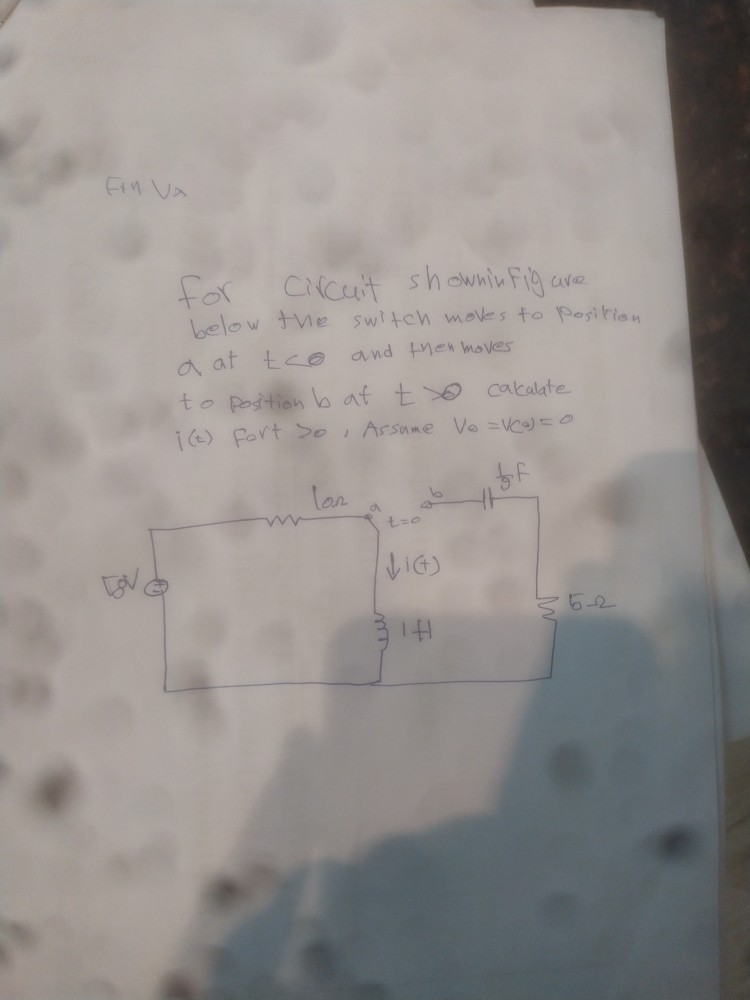 for circuit shown in figure
below the switch moves to position
a at t<0 and then moves
to position b at t >0 calculate
i(t) for t >0, Assume V0 = V(0) = 0
10Ω
a
b
1/9 F
t=0
i(t)
5Ω
1H